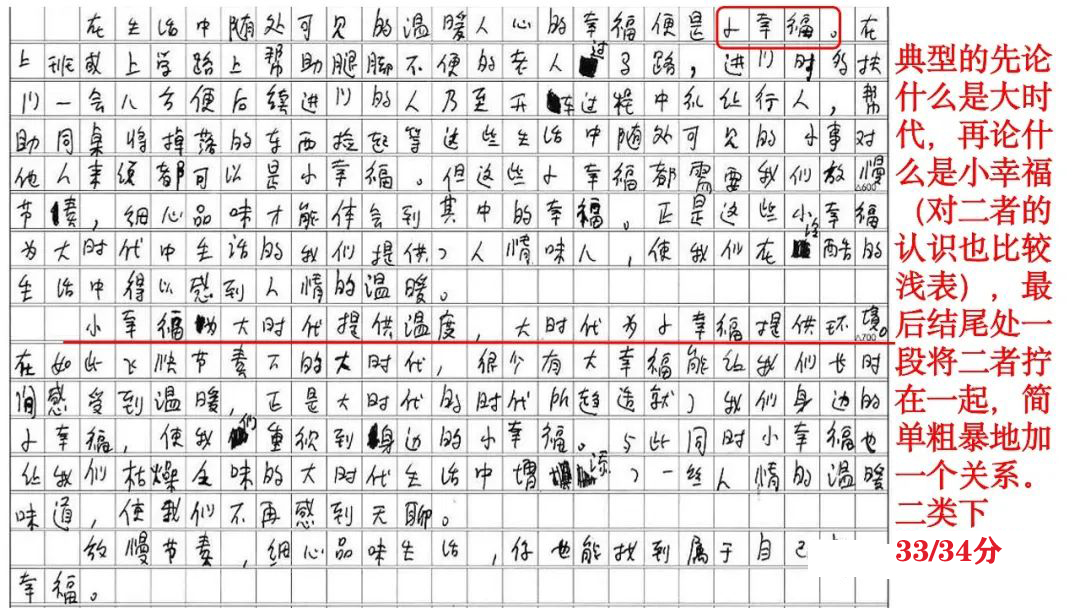 在生活中随处可见的温暖人心的幸福便是小幸福。在
上班或上学路上帮助腿脚不便的老人过了路，进门时多扶
门一会儿方便后续进门的人乃至开车过程中礼让行人，帮
助同桌将掉落的东西捡起等这些生活中随处可见的小事对
他人来须都可以是小幸福。但这些小幸福都需要我们放慢
△600
节奏，细心品味才能体会到其中的幸福。正是这些小幸福
为大时代中生活的我们提供了人情味儿，使我们在冷酷的
生活中得以感到人情的温暖。
小幸福为大时代提供温度，大时代为小幸福提供环境。
△700
在如此飞快节奏下的大时代，很少有大幸福能给我们长时
间感受到温暖，正是大时代的时代所造就了我们身边的
小幸福，使我们重视到身边的小幸福。与此同时小幸福也
给我们枯燥生味的大时代生活中增添了一丝人情的温暖
味道，使我们不再感到无聊。
放慢节奏，细心品味生活，仔也能找到属于自己
幸福。
典型的先论
什么是大时
代，再论什
么是小幸福
（对二者的
认识也比较
浅表），最
后结尾处一
段将二者拧
在一起，简
单粗暴地加
一个关系．
二类下
33/34分